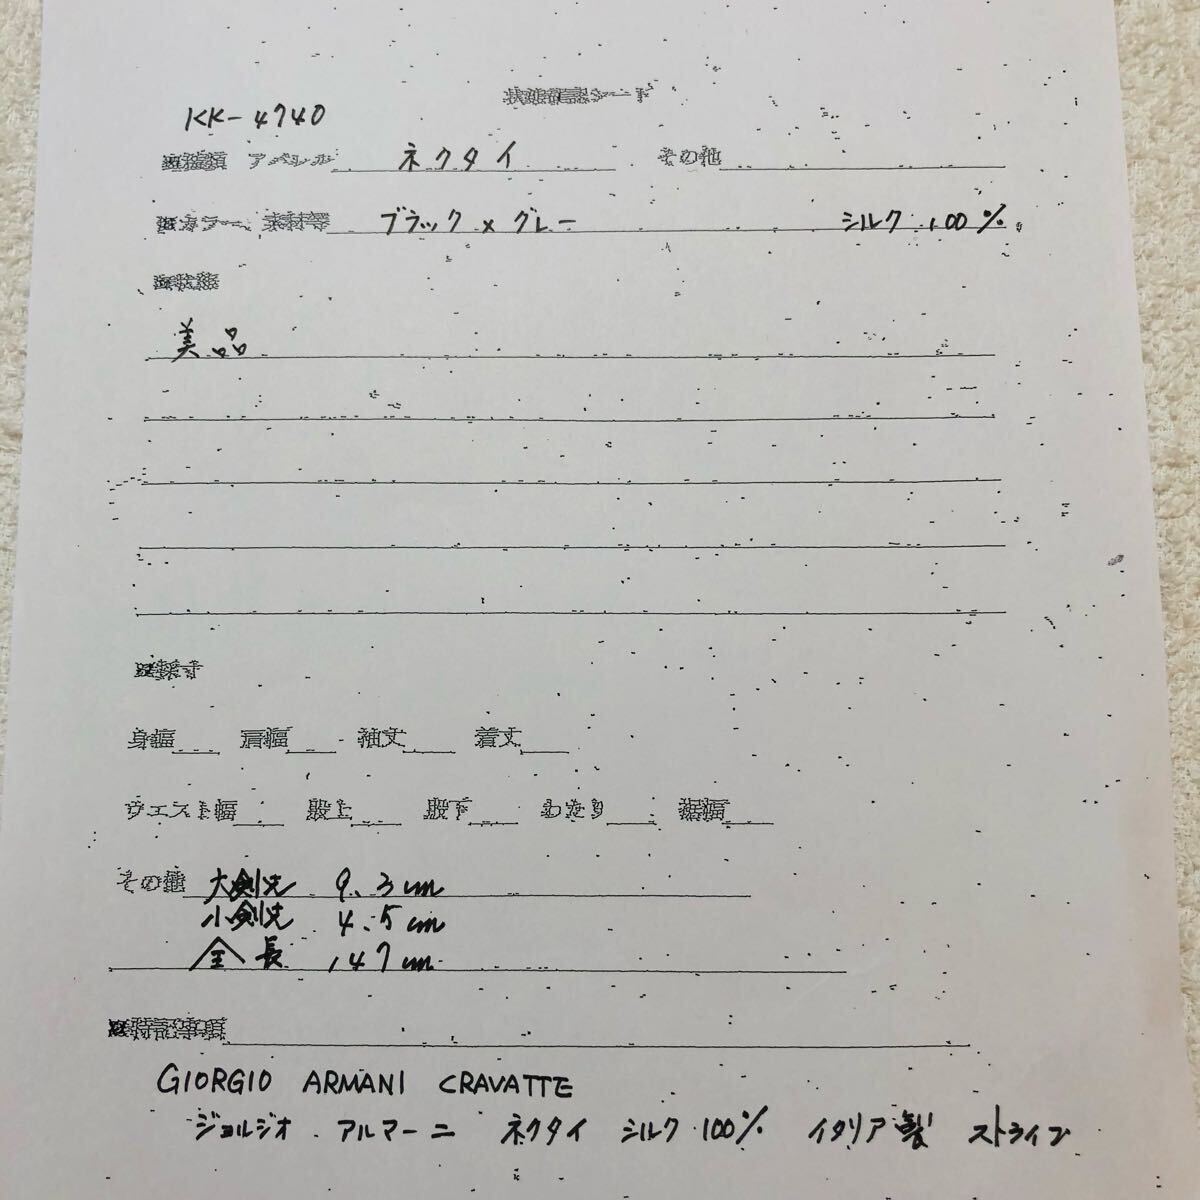 状態確認シート
KK-4740
※種類 アパレル ネクタイ その他
※カラー、素材等 ブラック×グレー シルク 100%
※状態
美品
※採寸
身幅 肩幅 袖丈 着丈
ウエスト幅 股上 股下 わたり 裾幅
その他 大剣先 9.3cm
小剣先 4.5cm
全長 147cm
※特記事項
GIORGIO ARMANI CRAVATTE
ジョルジオ アルマーニ ネクタイ シルク 100% イタリア製 ストライプ